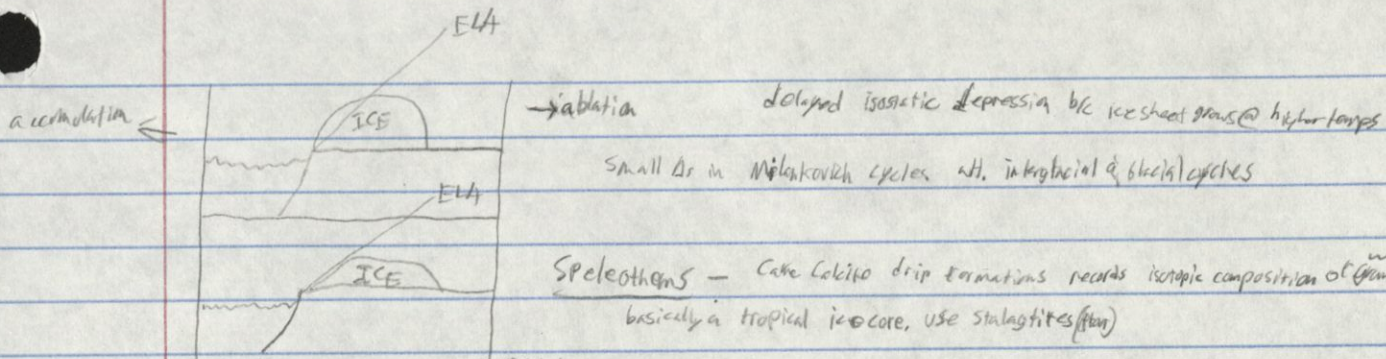 ELA
accumulation ← ICE → ablation delayed isostatic depression b/c ice sheet grows @ higher temps
small Δs in Milankovich cycles aff. interglacial & glacial cycles
ELA
ICE
Speleothems - Cave Calcite drip formations records isotopic composition of
basically a tropical icecore, use stalagtites